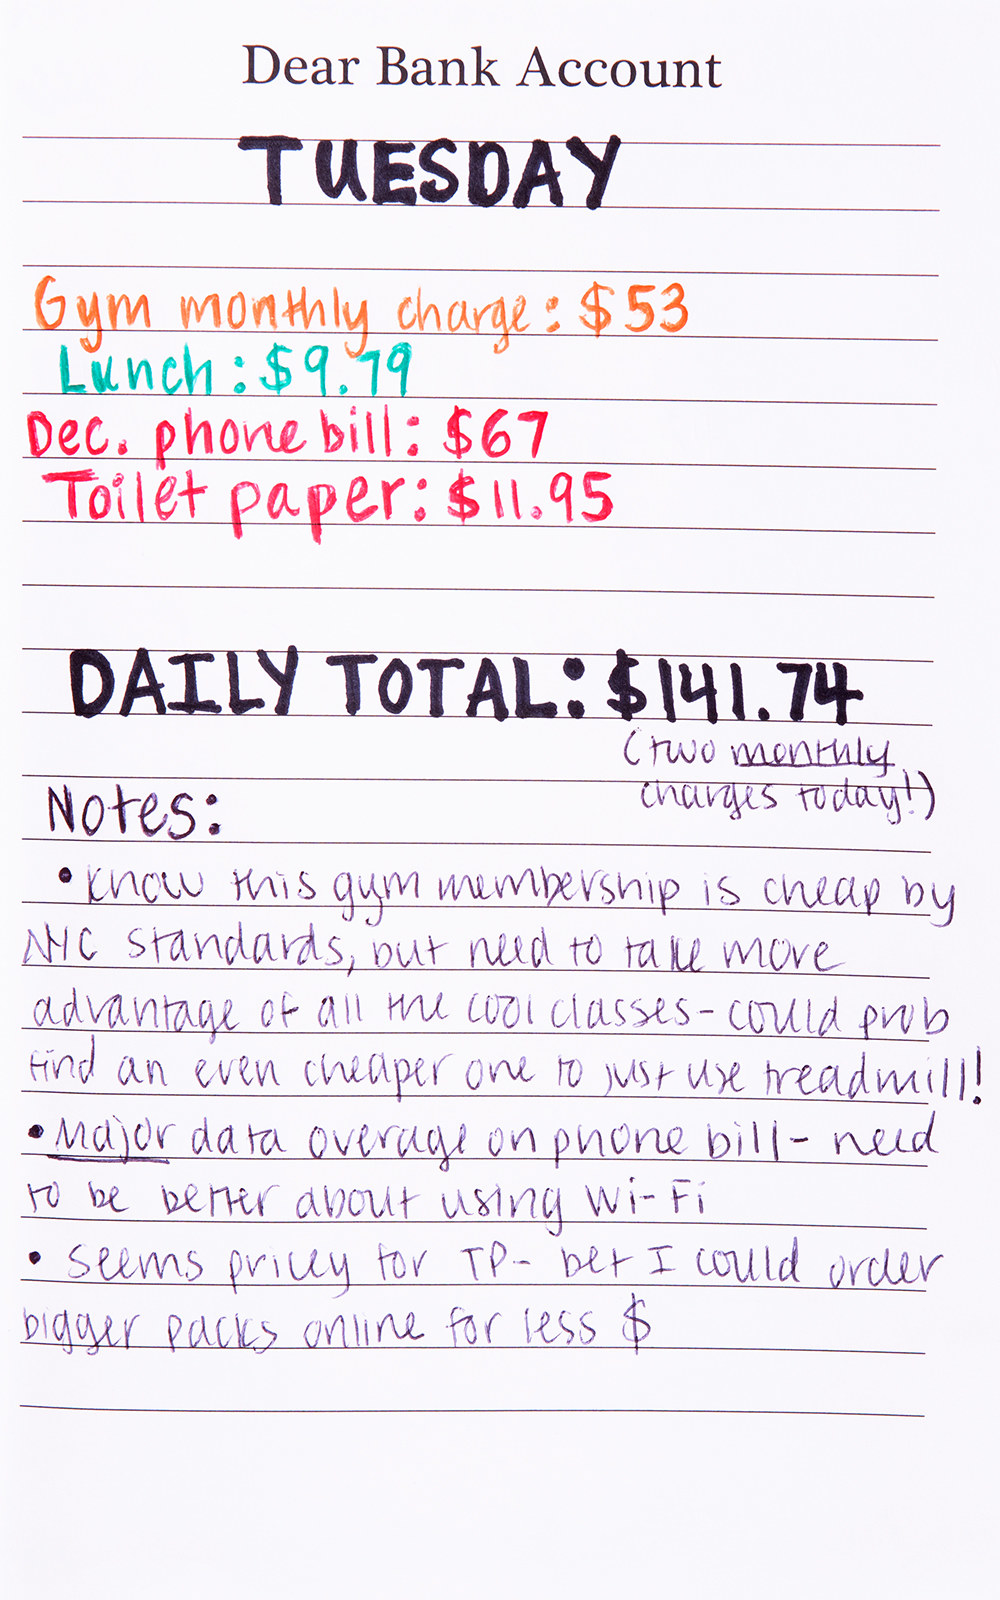 Dear Bank Account
TUESDAY
Gym monthly charge: $53
Lunch: $9.79
Dec. phone bill: $67
Toilet paper: $11.95
DAILY TOTAL: $141.74
(two monthly
charges today!)
Notes:
• Know this gym membership is cheap by
NYC standards, but need to take more
advantage of all the cool classes - could prob
find an even cheaper one to just use treadmill!
• Major data overage on phone bill - need
to be better about using Wi-Fi
• Seems pricey for TP - bet I could order
bigger packs online for less $